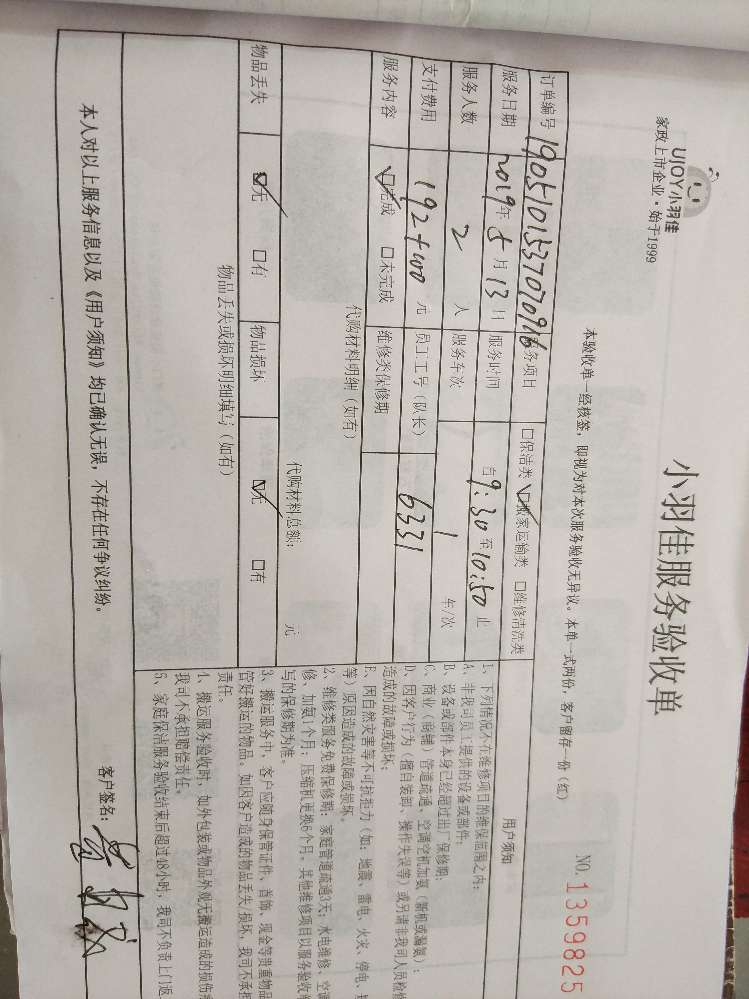 UJOY小羽佳
家政上市企业·始于1999
小羽佳服务验收单
NO.1359825
本验收单一经核签，即视为对本次服务验收无异议。本单一式两份，客户留存一份（红）
订单编号 1905101537070916 务项目 □保洁类 ☑搬家运输类 □维修清洗类
服务日期 2019年5月13日 服务时间 自9:30至10:50止
服务人数 2人 服务车次 1 车/次
支付费用 192+400 元 员工工号（队长） 6331
服务内容 ☑完成 □未完成 维修类保修期
代购材料明细（如有）
代购材料总额： 元
物品丢失 ☑无 □有 物品损坏 ☑无 □有
物品丢失或损坏明细填写（如有）
用户须知
1、下列情况不在维修项目的维保范围之内：
A、非我司员工提供的设备或部件；
B、设备或部件本身已经超过出厂保修期；
C、商业（商铺）管道疏通、空调空机加氨（新机或漏氨）；
D、因客户行为（擅自装卸、操作失误等）或另请非我司人员检修
造成的故障或损坏；
E、因自然灾害等不可抗拒力（如：地震、雷电、火灾、停电、
等）原因造成的故障或损坏。
2、维修类服务免费保修期：家庭管道疏通3天；水电维修、空调
修、加氨1个月；压缩机更换6个月。其他维修项目以服务验收单
写的保修期为准。
3、搬运服务中，客户应随身保管证件、首饰、现金等贵重物品
管好搬运的物品。如因客户造成的物品丢失/损坏，我司不承担
责任。
4、搬运服务验收时，如外包装或物品外观无搬运造成的损伤
我司不承担赔偿责任。
5、家庭保洁服务验收结束后超过48小时，我司不负责上门返
本人对以上服务信息以及《用户须知》均已确认无误，不存在任何争议纠纷。
客户签名：